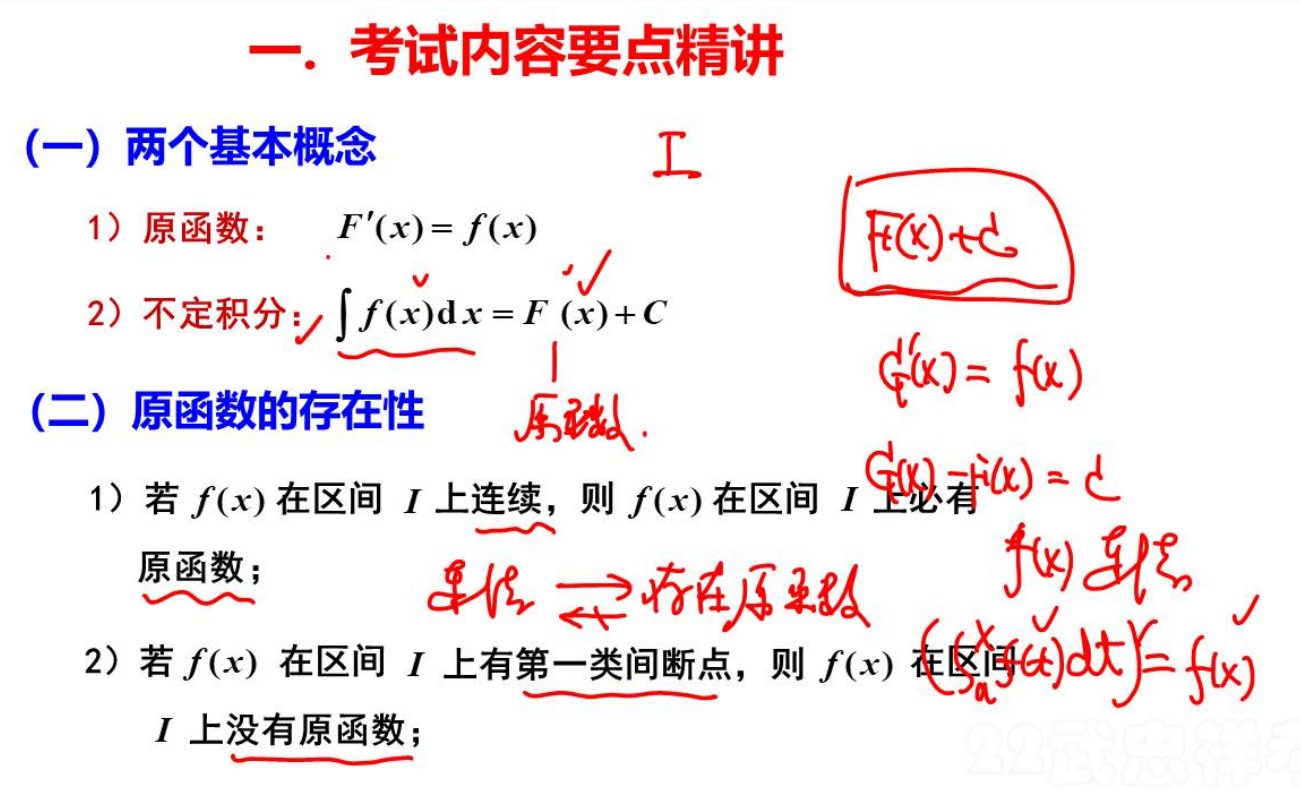 一. 考试内容要点精讲
（一）两个基本概念
I
1）原函数： F′(x) = f(x)
F(x)+C
2）不定积分： ∫ f(x)dx = F (x) + C
G′(x) = f(x)
（二）原函数的存在性
原函数.
G(x) − F(x) = C
1）若 f(x) 在区间 I 上连续，则 f(x) 在区间 I 上必有
原函数；
f(x) 连续
连续 ⇄ 存在原函数
2）若 f(x) 在区间 I 上有第一类间断点，则 f(x) 在区间
(∫ₐˣ f(t)dt)′ = f(x)
I 上没有原函数；
22武忠祥考